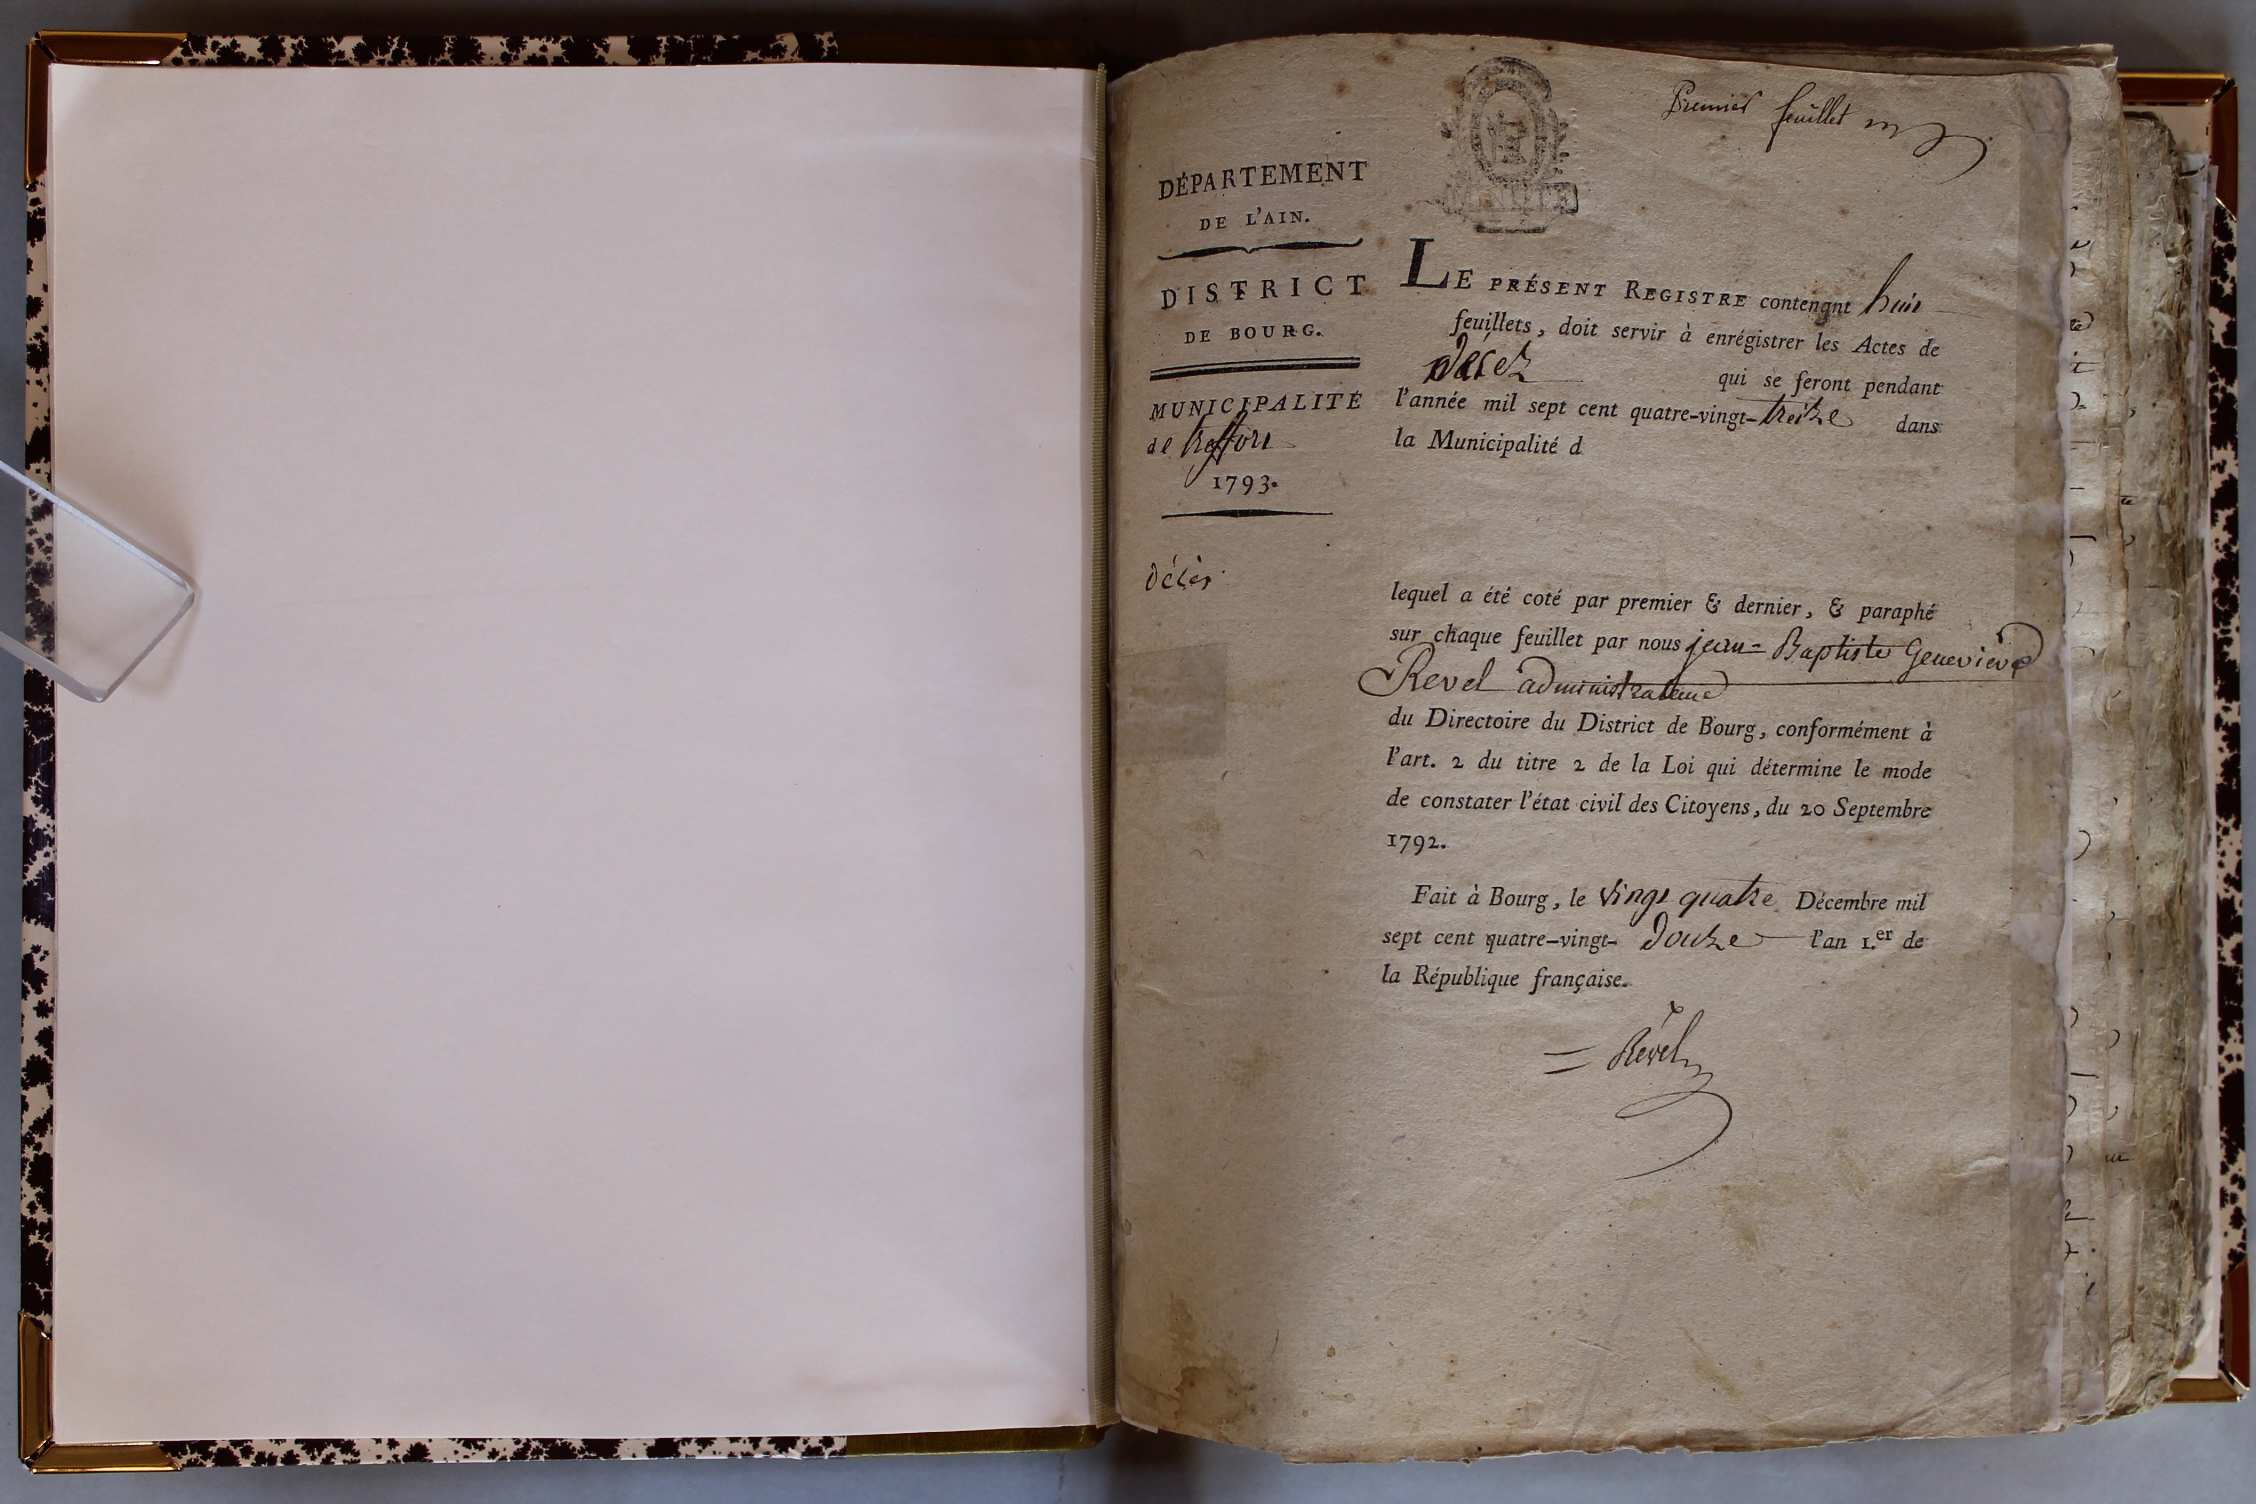 Premier feuillet
DÉPARTEMENT
DE L'AIN.
DISTRICT
DE BOURG.
MUNICIPALITÉ
de treffort
1793.
décès
LE PRÉSENT REGISTRE contenant huit
feuillets, doit servir à enrégistrer les Actes de
décez qui se feront pendant
l'année mil sept cent quatre-vingt-treize dans
la Municipalité d
lequel a été coté par premier & dernier, & paraphé
sur chaque feuillet par nous jean-Baptiste Genevieve
Revel administrateur
du Directoire du District de Bourg, conformément à
l'art. 2 du titre 2 de la Loi qui détermine le mode
de constater l'état civil des Citoyens, du 20 Septembre
1792.
Fait à Bourg, le vingt quatre Décembre mil
sept cent quatre-vingt-douze l'an 1.er de
la République française.
Revel